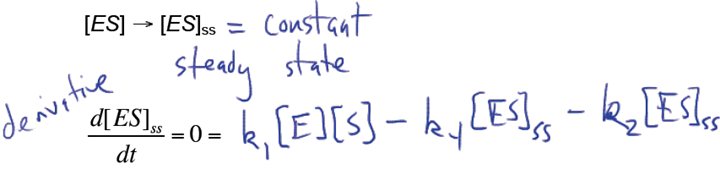 [ES] → [ES]ss = constant
steady state
derivitive
d[ES]ss/dt = 0 = k₁[E][S] − k₋₁[ES]ss − k₂[ES]ss